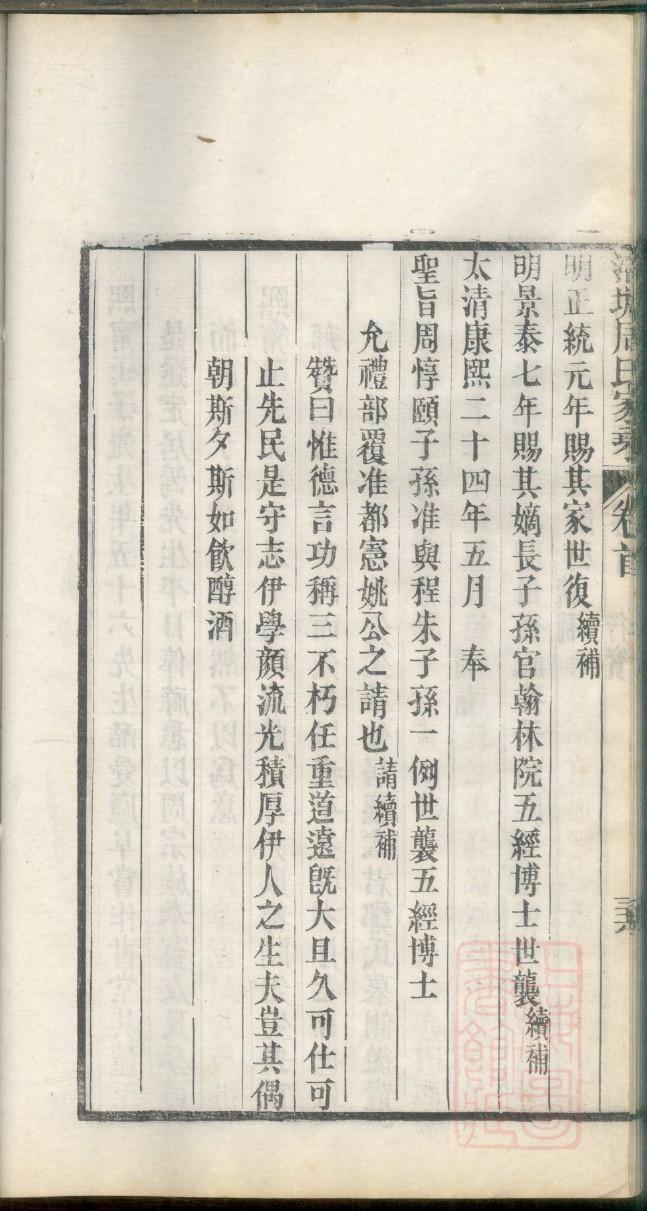 周氏家乘 卷首
明正統元年賜其家世復續補
明景泰七年賜其嫡長子孫官翰林院五經博士世襲續補
太清康熙二十四年五月 奉
聖旨周惇頤子孫准與程朱子孫一例世襲五經博士
允禮部覆准都憲姚公之請也請續補
贊曰惟德言功稱三不朽任重道遠旣大且久可仕可
止先民是守志伊學顏流光積厚伊人之生夫豈其偶
朝斯夕斯如飮醇酒